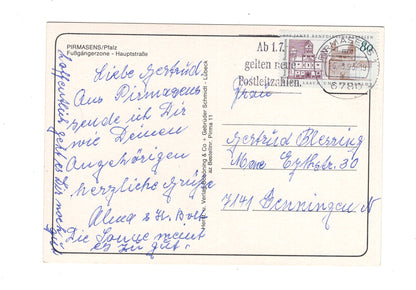 PIRMASENS/Pfalz
Fußgängerzone - Hauptstraße
Liebe Gertrud
Aus Pirmasens
sende ich Dir
wie Deinen
Angehörigen
herzliche Grüße
Alma &
Die Sonne meint
es zu gut.
hoffentlich geht es Dir noch
gut
Schöning & Co + Gebrüder Schmidt - Lübeck
Ab 1.7.
gelten neue
Postleitzahlen.
PIRMASENS
6780
Frau
Gertrud
30
7141 Benningen N